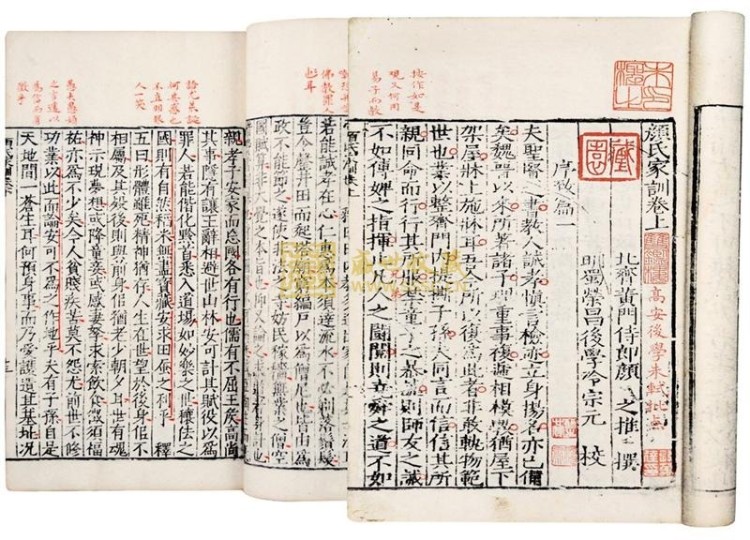 顏氏家訓卷上
北齊黃門侍郎顏之推 撰
明蜀榮昌後學冷宗元 校
高安後學朱軾批點
藏園
序致篇一
夫聖賢之書教人誠孝慎言檢迹立身揚名亦已備
矣魏晉以來所著諸子理重事複遞相模斆猶屋下
架屋牀上施牀耳吾今所以復為此者非敢軌物範
世也業以整齊門內提撕子孫夫同言而信信其所
親同命而行行其所服禁童子之暴謔則師友之誡
不如傅婢之指揮止凡人之鬬鬩則堯舜之道不如
按作如是
觀又何用
易子而教
若能誠孝在心仁惠為本須達流水不必剃落鬚髮
豈令罄井田而起塔廟窮編戶以為僧尼也皆由為
政不能節之遂使非法之寺妨民稼穡無業之僧空
國賦算非大覺之本旨也抑又論之
親孝子安家而忘國各有行也儒有不屈王侯高尚
其事隱有讓王辭相避世山林安可計其賦役以為
罪人若能偕化黔首悉入道場如妙樂之世禳佉之
國則有自然稻米無盡寶藏安求田蠶之利乎 釋
五曰形體雖死精神猶存人生在世望於後身似不
相屬及其歿後則與前身似猶老少朝夕耳世有魂
神示現夢想或降童妾或感妻孥求索飲食徵須福
祐亦為不少矣今人貧賤疾苦莫不怨尤前世不修
功業以此而論安可不為之作地乎夫有子孫自是
天地間一蒼生耳何預身事而乃愛護遺其基址況